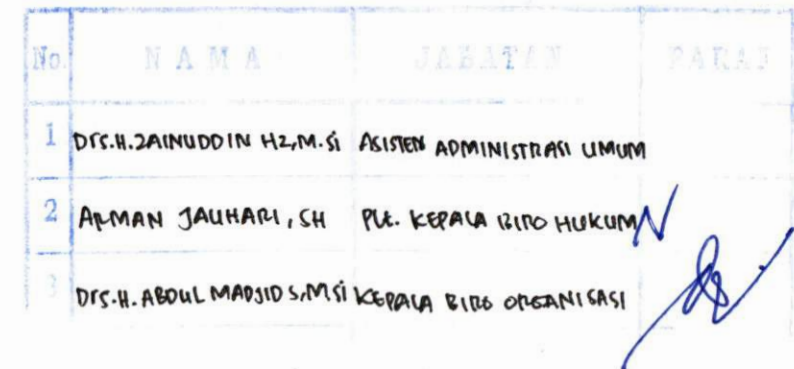 No. N A M A JABATAN PARAF
1 Drs.H.ZAINUDDIN HZ,M.Si ASISTEN ADMINISTRASI UMUM
2 ARMAN JAUHARI, SH PLt. KEPALA BIRO HUKUM
3 Drs.H. ABDUL MADJID S,MSi KEPALA BIRO ORGANISASI